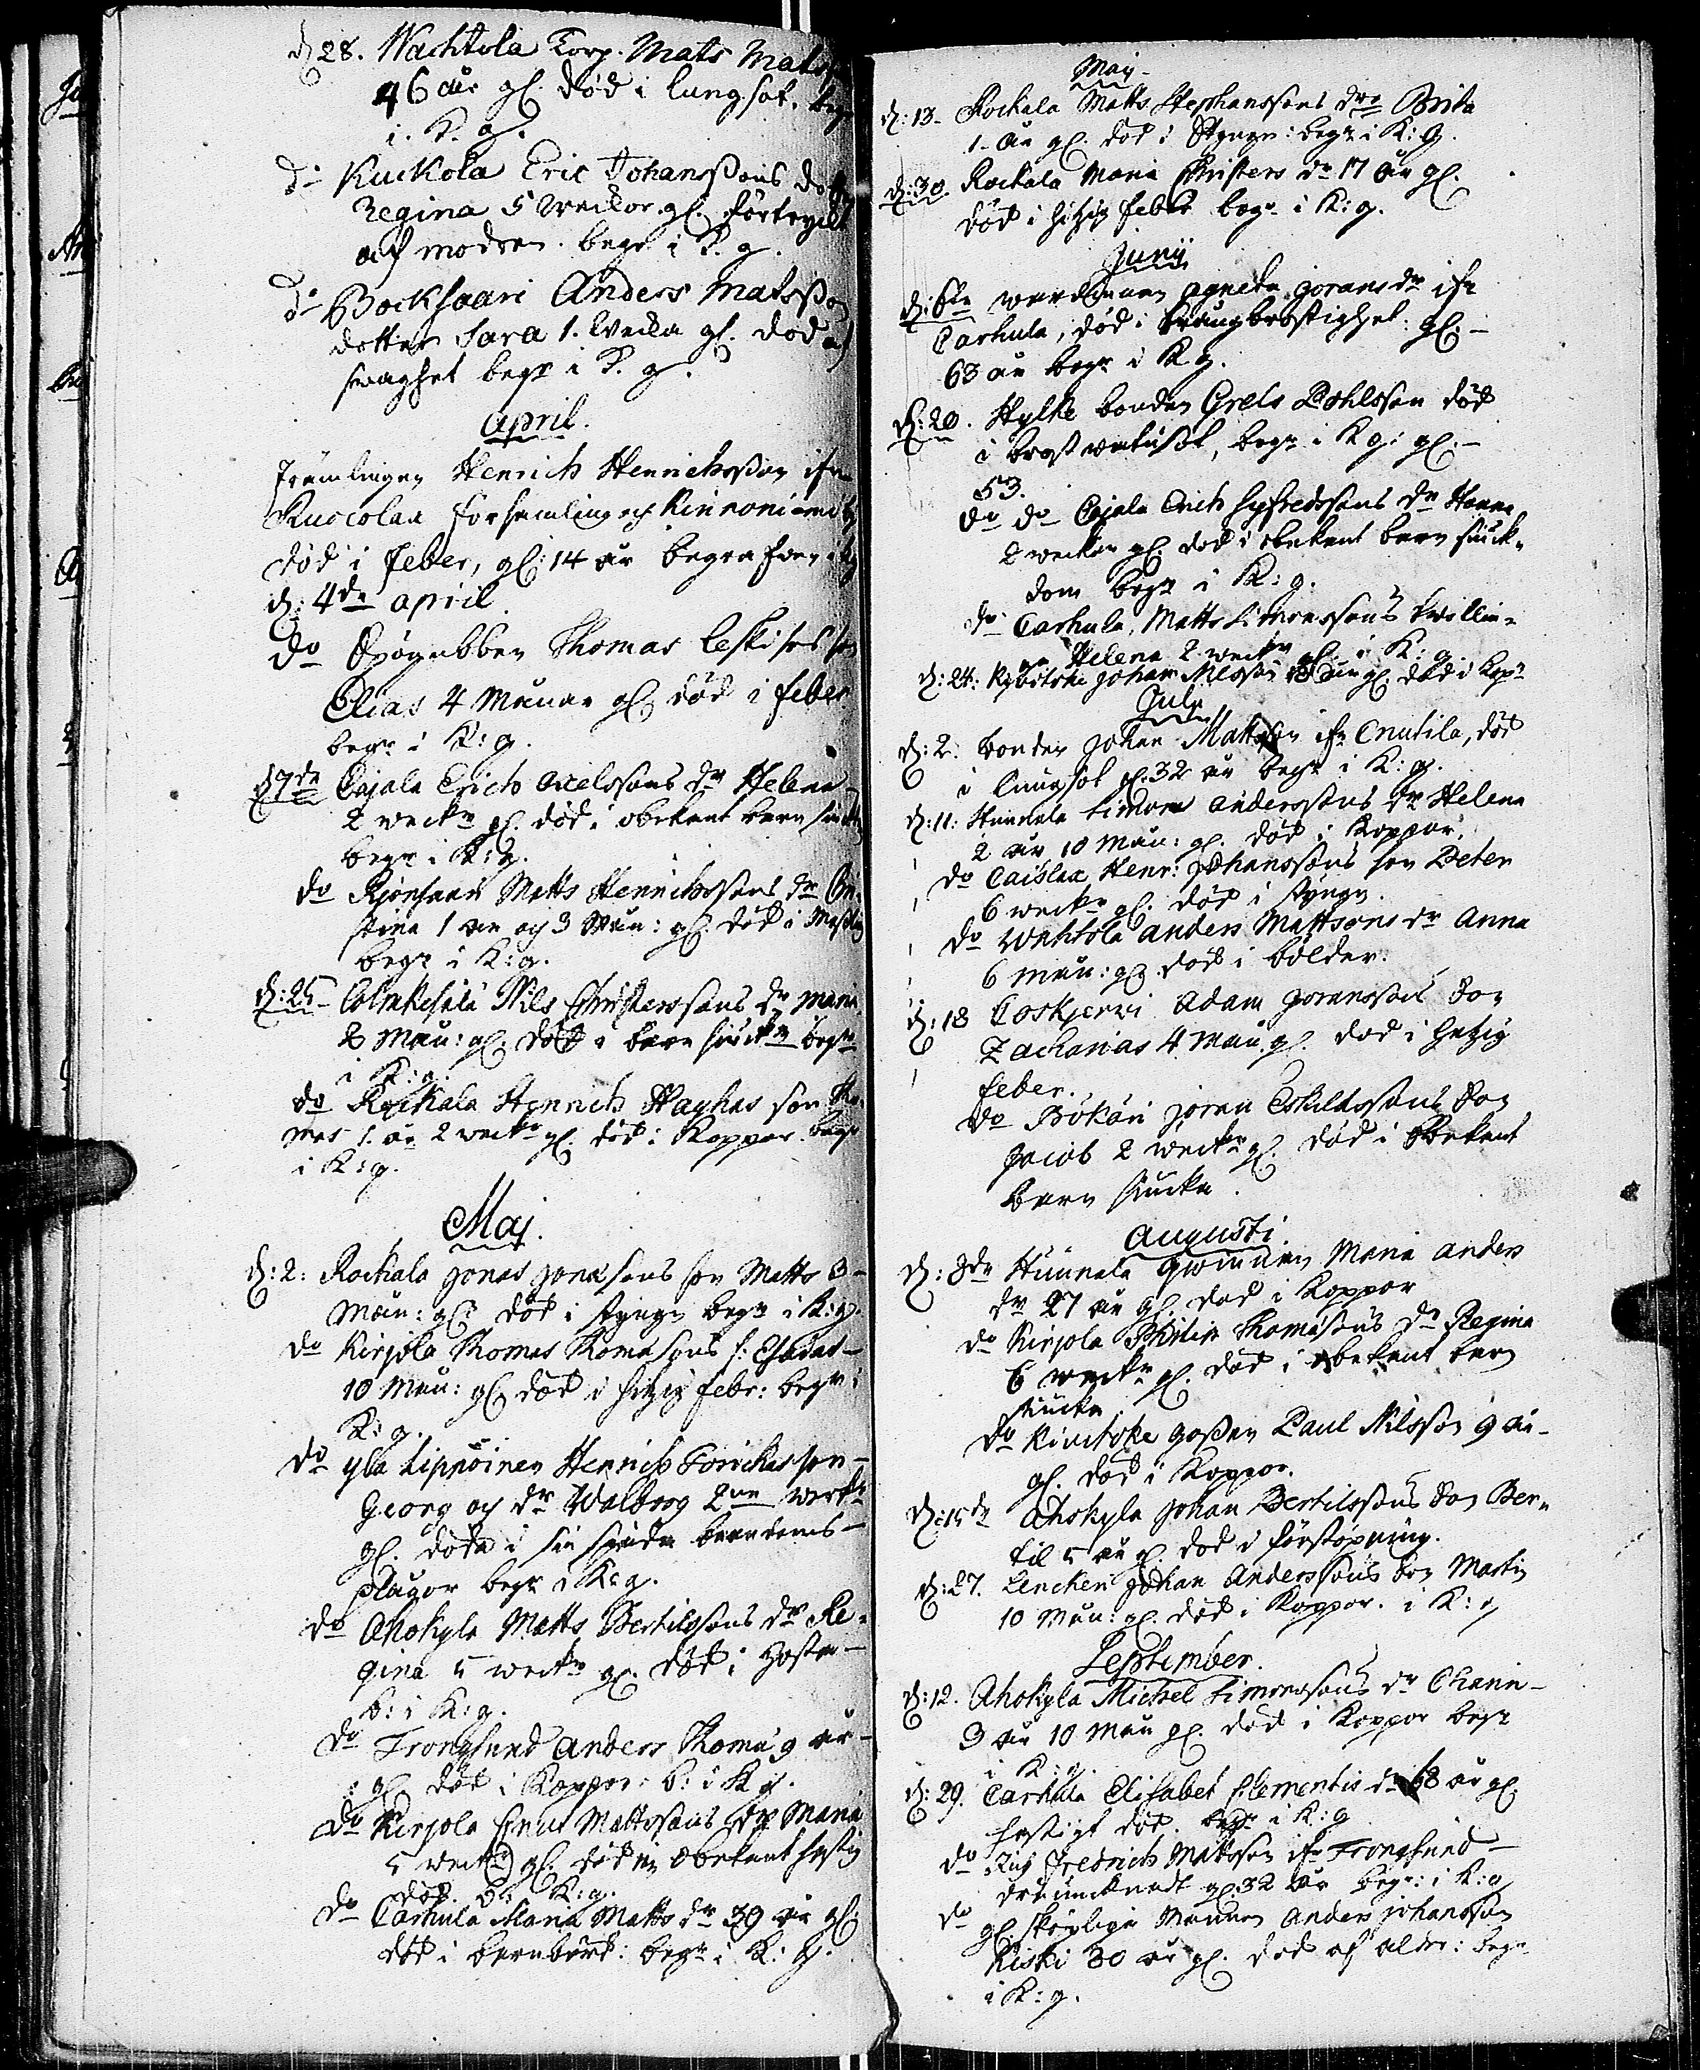 d: 28. Wachtola Torp. Mats Mats
46 åhr gl. död i lungsot. beg
i K. g.
do Kuckola Eric Johanssons dott
Regina 5 weckor gl. förtryckt
af modren. begr i K. g.
do Bocksaari Anders Matsson
dotter Sara 1. Wecka gl. död af
swaghet begr i K. g.
April.
främlingen Henrich Henrichsson ifr
Ruocolax församling och Kinnoniemi by
död i feber, gl: 14 år begrafwen
d: 4de april
do Thomas Leskises son
Elias 4 Månar gl. död i feber
begr i K: g.
d 7de Cajala Erich Axelssons dr Helena
2 weckr gl. död i obekant barn siuck
begr i K: g.
do Rjönsaari Matts Henrichssons dr Chri
stina 1 år och 3 Mån: gl. död i Mässling
begr i K: g.
d: 25 Colmkesälä Nils Christerssons dr Maria
8 Mån: gl. död i barn siuckm begr
i K: g.
do Rockala Henrich Hayhas son Tho
mas 1. år 2 weckr gl. död i Koppor. begr
i K: g.
Maj.
d: 2: Rockala Jonas Jonassons son Matts 3
Mån: gl: död i styngn begr i K: g.
do Kirjola Thomas Thomassons s: Esaias
10 Mån: gl död i hitzig febr: begr i
K: g.
do yla Lippoinen Henrich Torickas son
Georg och dr Walborg 2ne weckr
gl. döda i sin späda barndoms
plågor begr i K: g.
do Ahokyla Matts Bertilssons dr Re
gina 5 weckr gl. död i Hosta
b: i K: g.
do Trongsund Anders Thoma 9 år
gl. död i Koppor: b: i K g.
do Kirjola Knut Mattssons dr Maria
5 weckr gl. död i obekant hastig
död. b: K: g.
do Carhula Maria Matts dr 39 år gl:
död i barnbörd: begr i K: g.
Maij
d: 13. Rockala Matts Stephanssons dr Brita
1. år gl. död i Styngn: begr i K: g.
d: 30. Rockala Maria Christers dr 17 år gl.
död i hitzig feber begr i K: g.
Junij
d: 6te wärdinnan Agneta Jörans dr ifr
Carhula, död i trångbröstighet: gl.
63 år begr i K g.
d: 20. Kylke bonden Grels Pohlsson död
i bröst wärksot, begr i K g: gl.
53.
do do Cajala Erich Sigfredssons dr Hanna
2 weckor gl. död i obekant barn siuck
dom begr i K: g.
do Carhula, Matts Simonssons twillin
gen Helena 2 weckr gl. i K: g
d: 24: Johan Nilsson år gl. död i kopr
July
d: 2. bonden Johan Mattsson ifr Cnutila, död
i lungsot gl. 32 år begr i K: g.
d: 11: Hunnela Simon Anderssons dr Helena
2 år 10 Mån: gl. död i Koppor.
do Caislax Henr: Johanssons son Peter
6 weckr gl. död i styngn.
do Wahtola Anders Mattsons dr Anna
6 mån: gl död i bölder.
d: 18 Coskjerwi Adam Joranssons Son
Zacharias 4 Mån. gl. död i hetzig
feber.
do Pökäri Jöran Eskilssons Son
Jacob 2 weckr gl. död i obekant
barn siucka.
Augusti.
d: 8de Hunnela Qwinnan Maria Anders
dr 27 år gl. död i Koppor
do Kirjola Philip Thomassons dr Regina
6 weckr gl. död i obekant barn
siucka
do gossen Paul Nilsson 9 år
gl. död i Koppor.
d: 15de Ahokyla Johan Bertilssons Son Ber
til 5 år gl. död i förstopning.
d: 27. Lenckeri Johan Anderssons Son Martin
10 Mån: gl. död i Koppor. i K: g
September.
d: 12. Ahokyla Michel Simonssons dr Charin
3 år 10 Mån gl. död i Koppor begr
i K: g.
d: 29. Carhula Elisabet Clementis dr 68 år gl.
hastigt död. begr i K: g
do Fredrich Mattsson ifr Trongsund
druncknadt gl. 32 år begr: i K: g
do gl. Mannen Anders Johansson
Kiski 80 år gl. död af ålder: begr
i K: g.